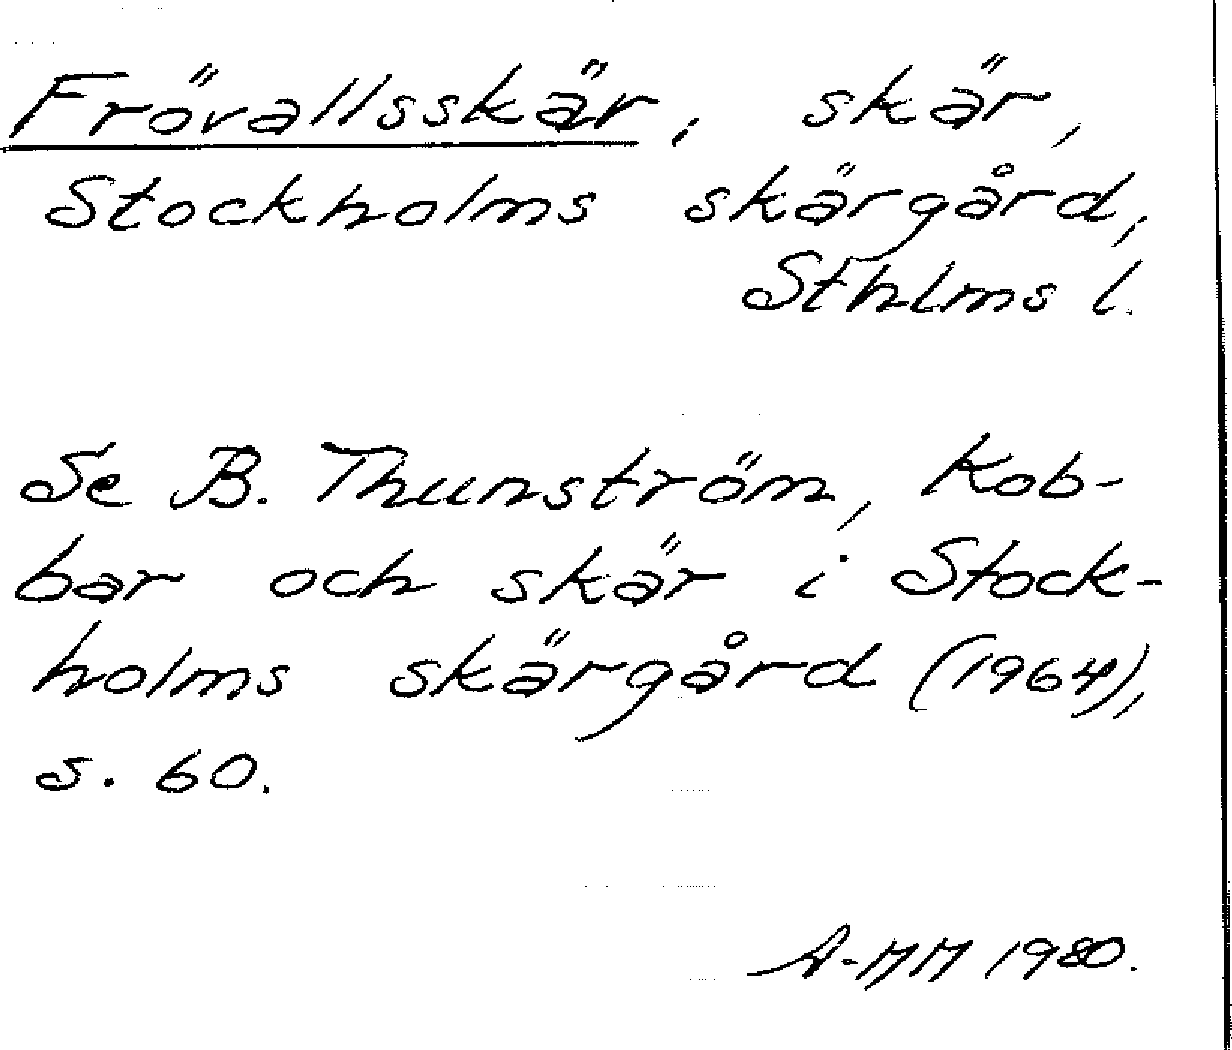 Frövallsskär, skär,
Stockholms skärgård,
Sthlms l.
Se B. Thunström, Kob-
bar och skär i Stock-
holms skärgård (1964),
s. 60.
A-MM 1980.